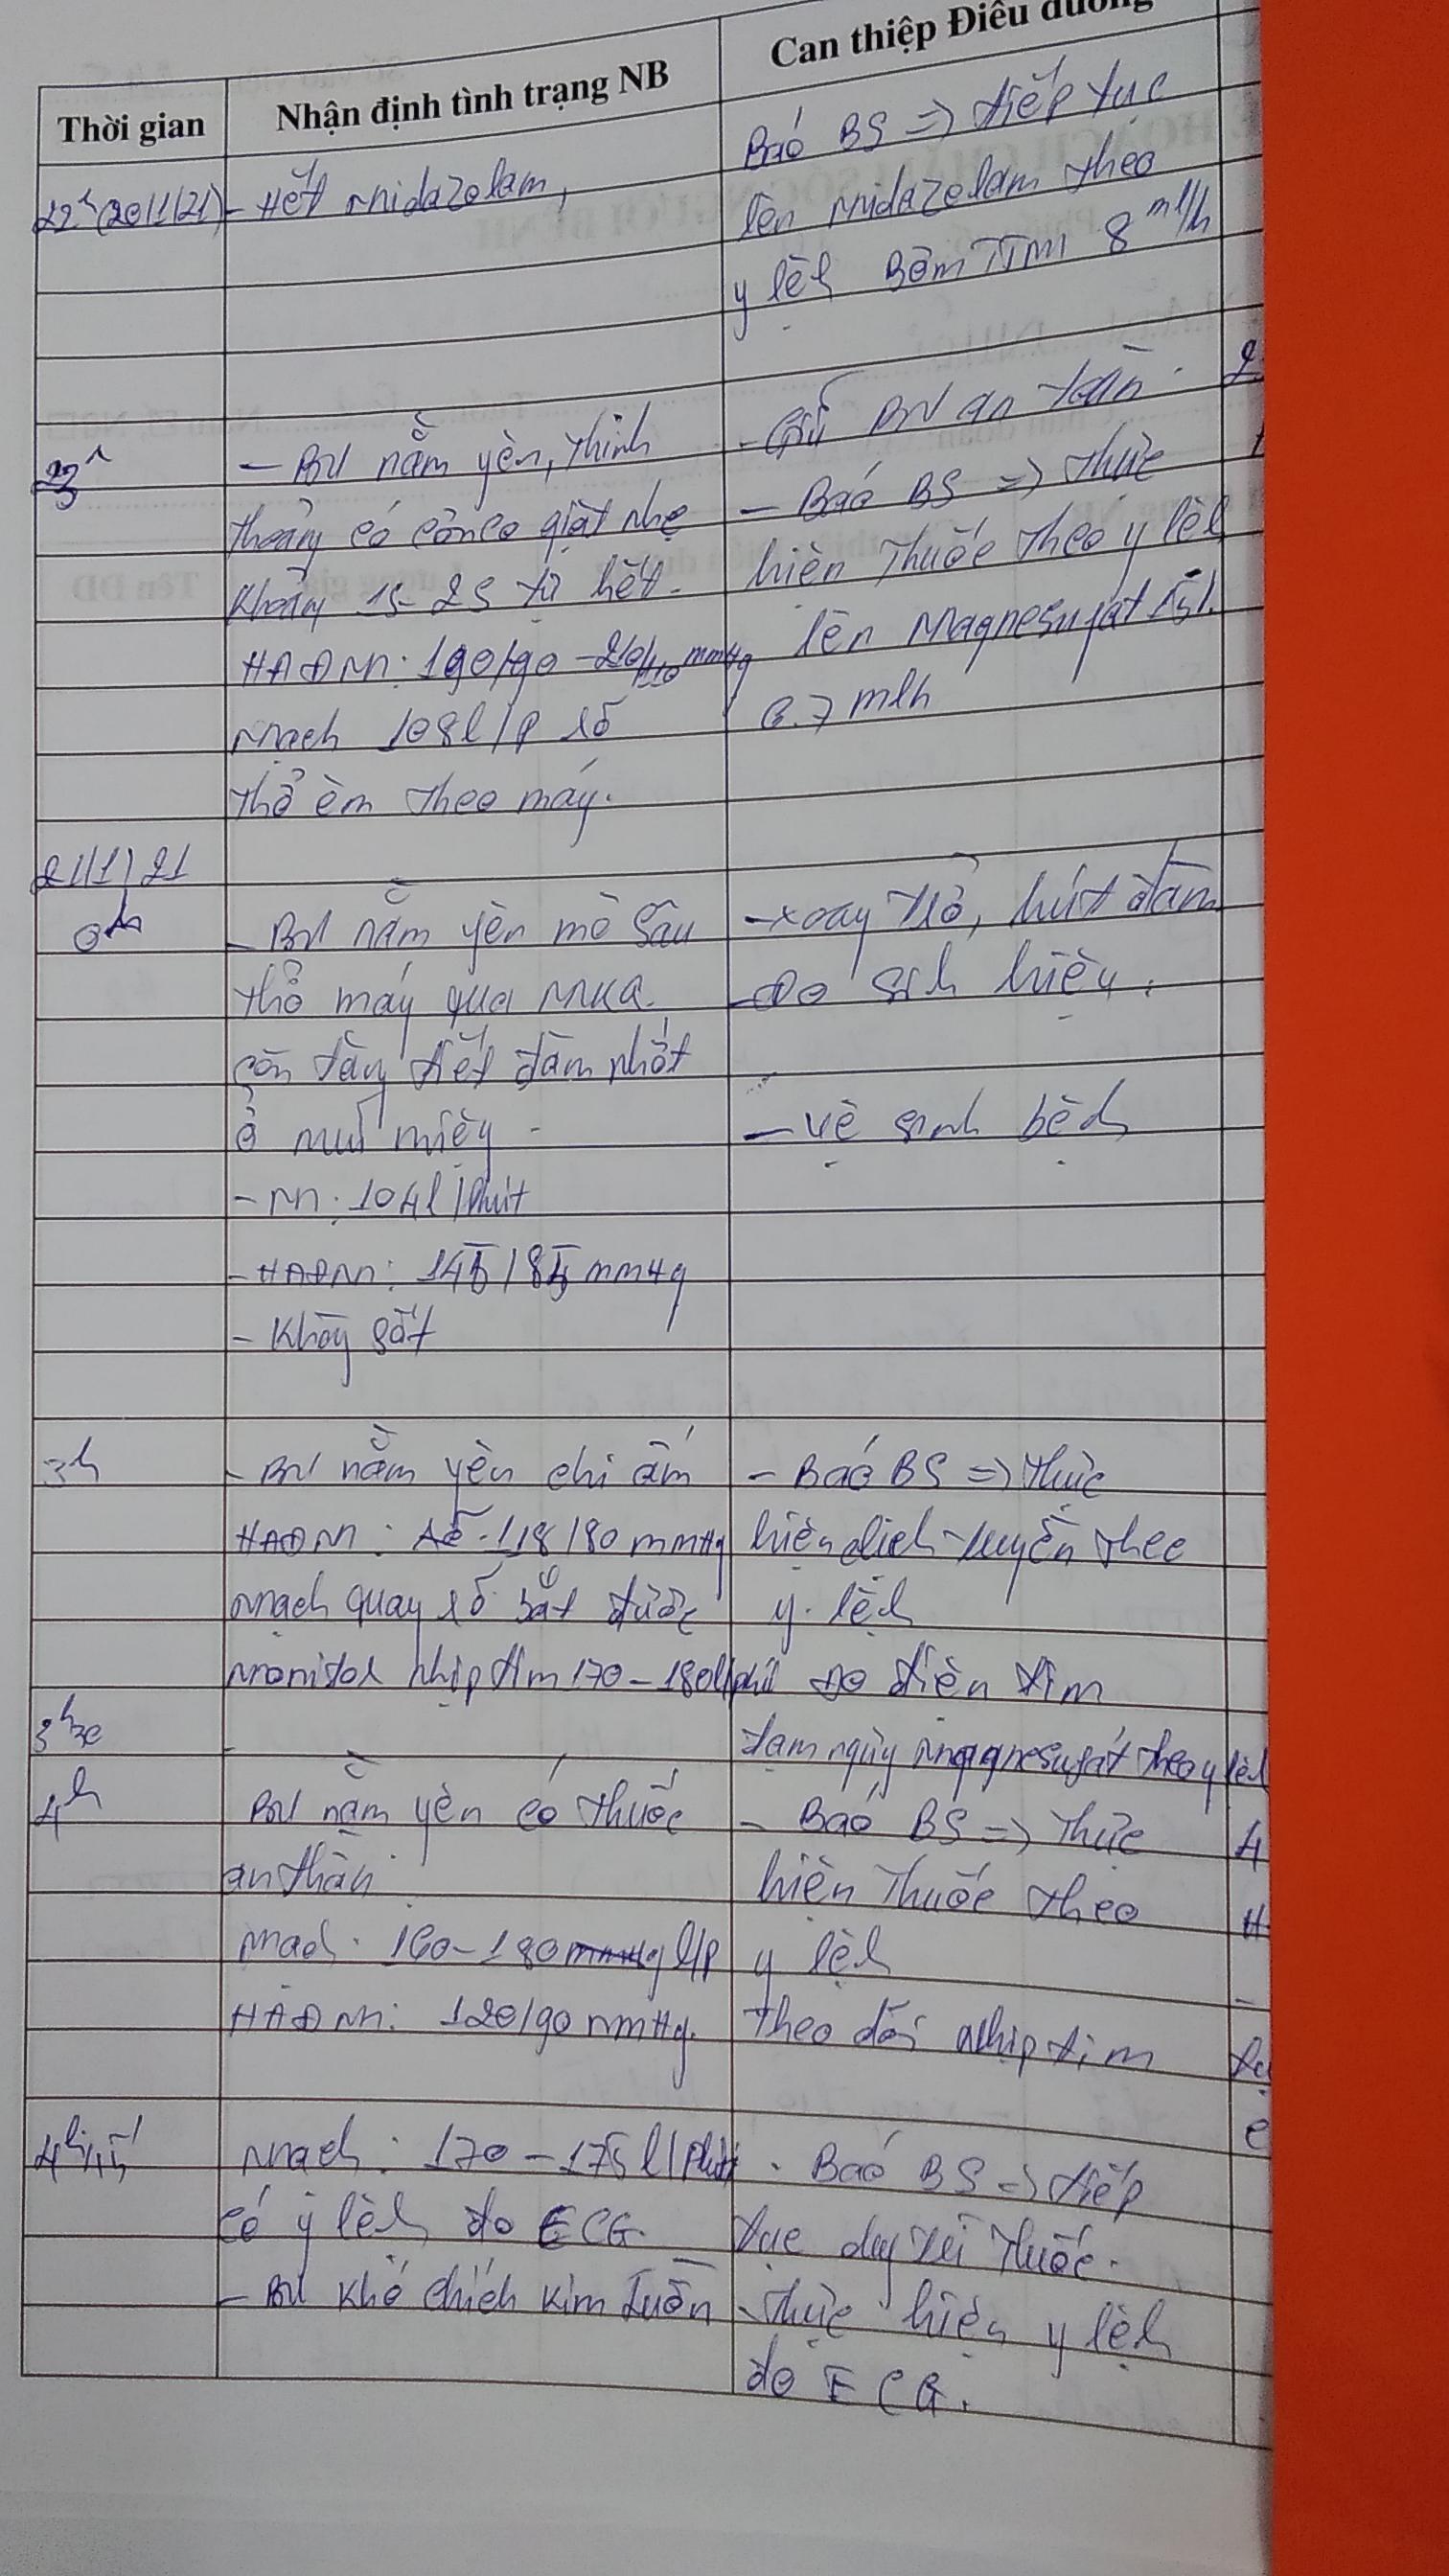 Thời gian
Nhận định tình trạng NB
Can thiệp Điều dưỡng
22h (20/1/21)
- Hết Midazolam,
Báo BS => tiếp tục
lên Midazolam theo
y lệh Bơm TTM 8 ml/h
23h
- BN nằm yên, thỉnh
thoảng có cơn co giật nhẹ
khoảng 1s - 2s tự hết.
HAĐM: 190/90 - 210/110 mmHg
Mạch 108 l/p rõ
thở êm theo máy.
- Giữ BN an toàn.
- Báo BS => thực
hiện thuốc theo y lệh
lên Magnesufat 15%
ml/h
21/1/21
0h
- BN nằm yên mê sâu
thở máy qua MKQ.
còn tăng tiết đàm nhớt
ở mũi miệng
- M: 104 l/phút
- HAĐM: 145/85 mmHg
- Không sốt
- xoay trở, hút đàm
- Đo sih hiệu.
- vệ sinh bệh
3h
- BN nằm yên chi ấm
HAĐM: 118/80 mmHg
Mạch quay rõ bắt được
Monitor nhịp tim 170 - 180 l/phút
- Báo BS => thực
hiện dịch truyền theo
y lệh
Đo điện tim
3h30
tạm ngưng Magnesufat theo y lệh
4h
BN nằm yên có thuốc
an thần
Mạch: 160 - 180 l/p
HAĐM: 120/90 mmHg.
- Báo BS => Thực
hiện Thuốc theo
y lệh
Theo dõi nhịp tim
4h45'
Mạch: 170 - 175 l/phút
có y lệh đo ECG.
- BN khó chích kim luồn
- Báo BS => tiếp
tục duy trì thuốc.
- Thực hiện y lệh
đo ECG.